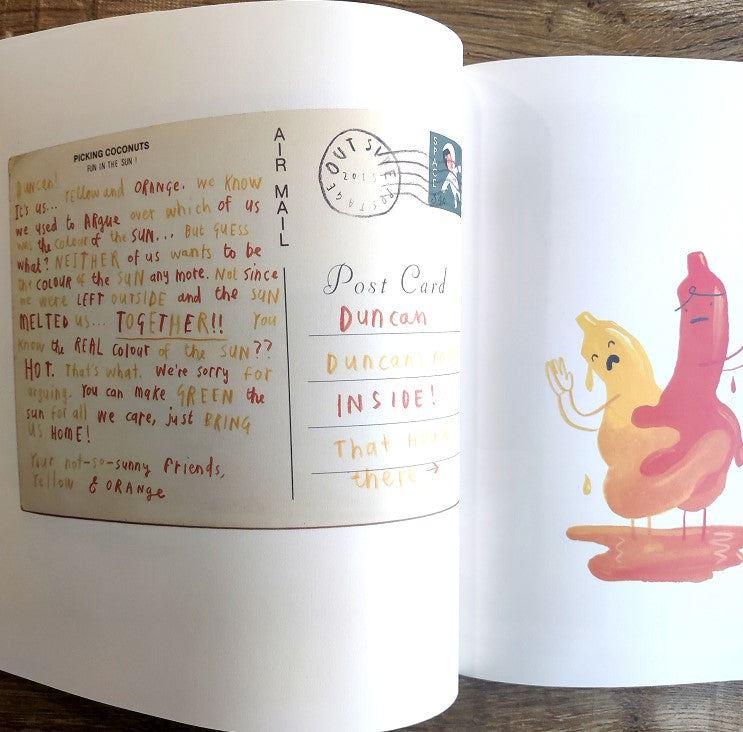 PICKING COCONUTS
FUN IN THE SUN!
Duncan!
It's us... Yellow and ORANGE. We know
we used to ARgue over which of us
was the colour of the SUN... But GUESS
what? NEITHER of us wants to be
the COLOUR of the SUN any more. Not since
we were LEFT OUTSIDE and the SUN
MELTED us... TOGETHER!! You
know the REAL colour of the SUN??
HOT. That's what. We're sorry for
arguing. You can make GREEN the
sun for all we care, just BRING
US HOME!
Your not-so-sunny friends,
Yellow & ORANGE
AIR MAIL
POSTAGE OUT
2015
SPACE
Post Card
Duncan
Duncan's
INSIDE!
That
there →